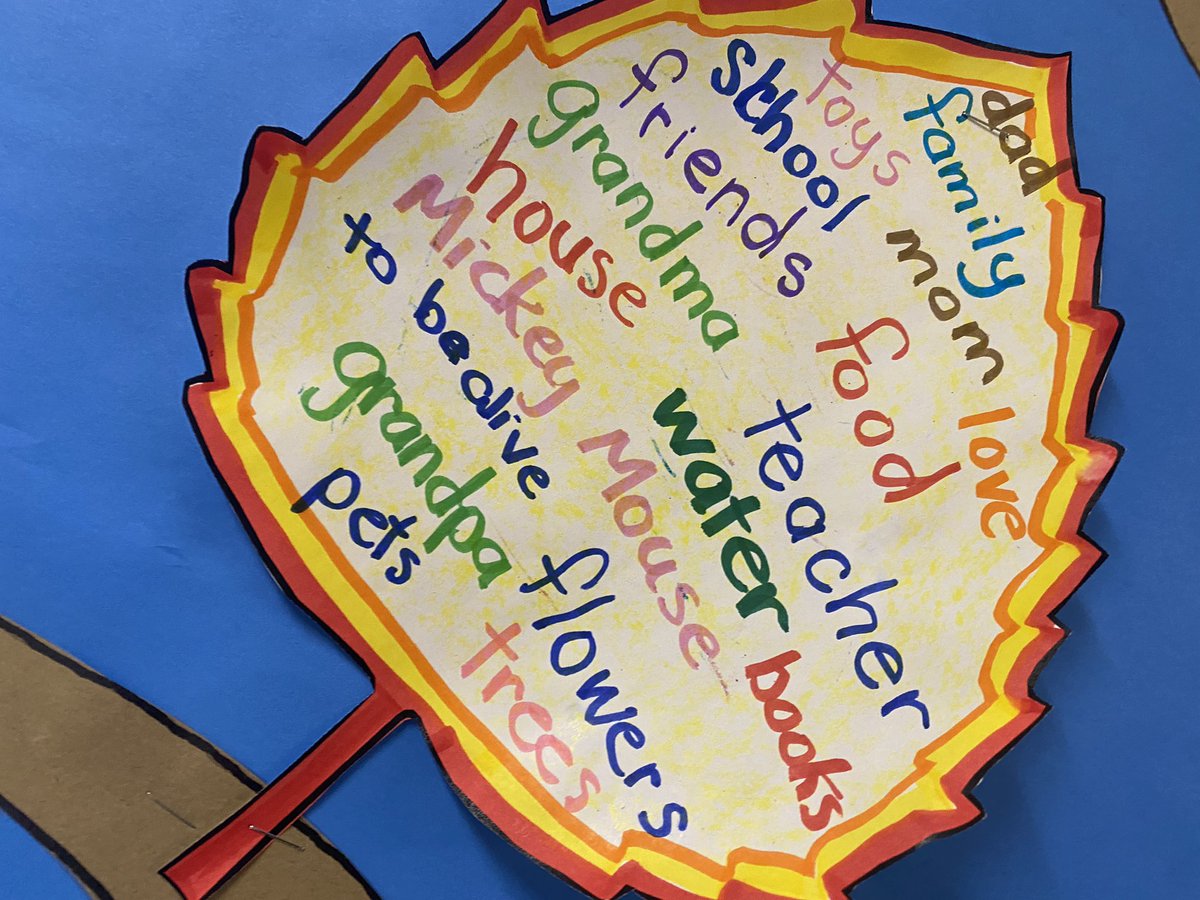 dad
family
toys
mom
School
friends
love
Grandma
food
house
teacher
Mickey Mouse
water
books
to be alive
Grandpa
flowers
pets
trees